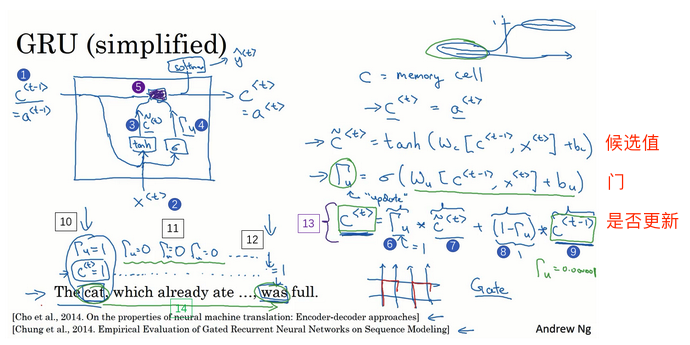 GRU (simplified)
1
c^{<t-1>}
=a^{<t-1>}
softmax
ŷ^{<t>}
5
c^{<t>}
=a^{<t>}
3
c̃^{<t>}
Γ_u
4
tanh
σ
x^{<t>}
2
1
C = memory cell
→ C^{<t>} = a^{<t>}
→ c̃^{<t>} = tanh(W_c[c^{<t-1>}, x^{<t>}] + b_c) 候选值
→ Γ_u = σ(W_u[c^{<t-1>}, x^{<t>}] + b_u) 门
"update"
13 c^{<t>} = Γ_u * c̃^{<t>} + (1-Γ_u) * c^{<t-1>} 是否更新
6 =1 7 8 9
Γ_u = 0.000001
Gate
10 11 12
Γ_u=1 Γ_u=0 Γ_u=0 Γ_u=0 .....
c^{<t>}=1 ..... =1
→ The cat, which already ate ..., was full.
14
[Cho et al., 2014. On the properties of neural machine translation: Encoder-decoder approaches] ←
[Chung et al., 2014. Empirical Evaluation of Gated Recurrent Neural Networks on Sequence Modeling] ←
Andrew Ng